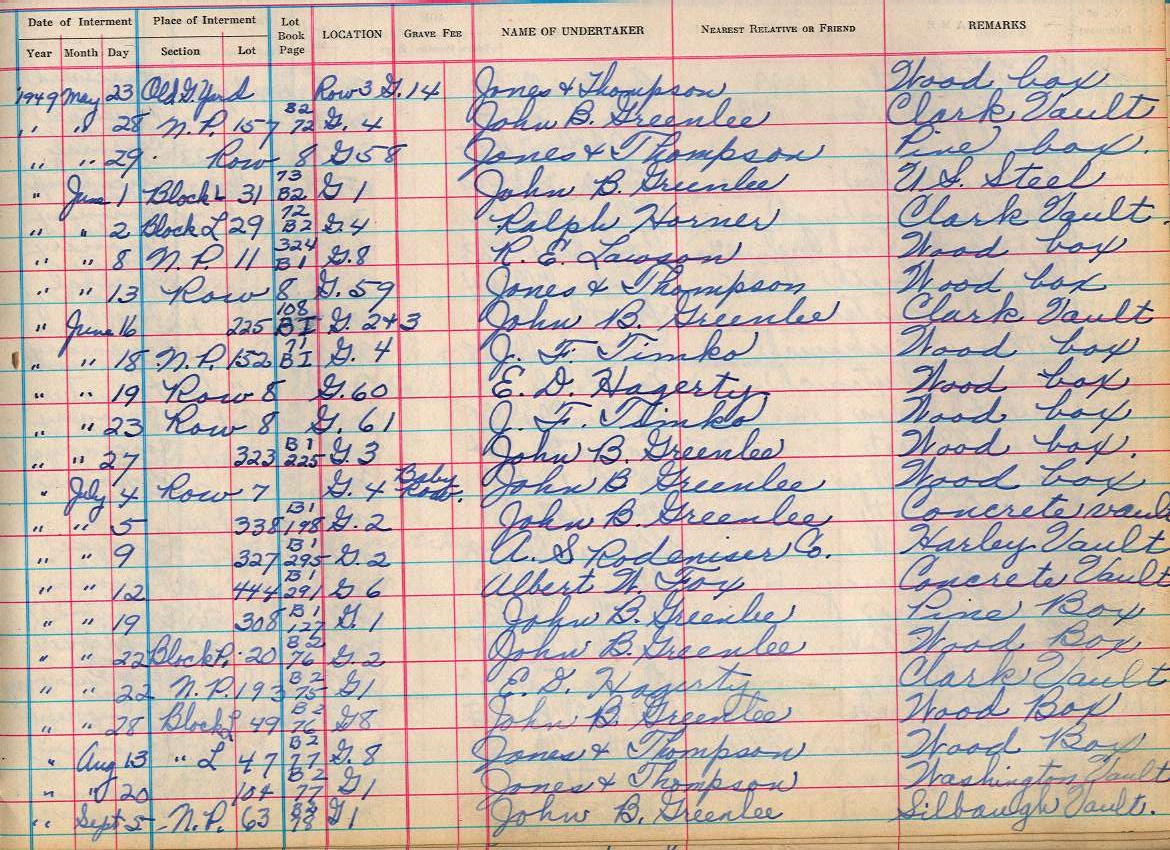 Date of Interment Place of Interment Lot Book Page LOCATION GRAVE FEE NAME OF UNDERTAKER NEAREST RELATIVE OR FRIEND REMARKS
Year Month Day Section Lot
1949 May 23 Old G. Yard Row 3 G. 14 Jones & Thompson Wood box
" " 28 N.P. 157 B2 72 G. 4 John B. Greenlee Clark Vault
" " 29 Row 8 G 58 Jones & Thompson Pine box.
" June 1 Block L 31 73 B2 G 1 John B. Greenlee U.S. Steel
" " 2 Block L 29 72 B2 G. 4 Ralph Horner Clark Vault.
" " 8 N.P. 11 324 B1 G. 8 R. E. Lawson Wood box
" " 13 Row 8 G. 59 Jones & Thompson Wood box
" June 16 225 108 BI G. 2+3 John B. Greenlee Clark Vault
" " 18 N.P. 152 71 BI G. 4 J. F. Timko Wood box
" " 19 Row 8 G. 60 E. D. Hagerty Wood box
" " 23 Row 8 G. 61 J. F. Timko Wood box
" " 27 323 B1 225 G. 3 John B. Greenlee Wood box.
" July 4 Row 7 G. 4 Baby Row. John B Greenlee Wood box
" " 5 338 B1 198 G. 2 John B. Greenlee Concrete vault
" " 9 327 B1 295 G. 2 A. S Rodeniser Co. Harley Vault
" " 12 444 B1 291 G 6 Albert W. Fox Concrete Vault
" " 19 308 B1 127 G. 1 John B. Greenlee Pine Box
" " 22 Block P. 20 B2 76 G. 2 John B. Greenlee Wood Box
" " 22 N.P. 193 B2 75 G1 E. D. Hagerty Clark Vault
" " 28 Block L 49 B2 76 G8 John B. Greenlee Wood Box
" Aug 13 " L 47 B2 77 G. 8 Jones & Thompson Wood Box
" " 20 104 B2 77 G1 Jones & Thompson Washington Vault
" Sept 5 N.P. 63 G1 John B. Greenlee Silbaugh Vault.